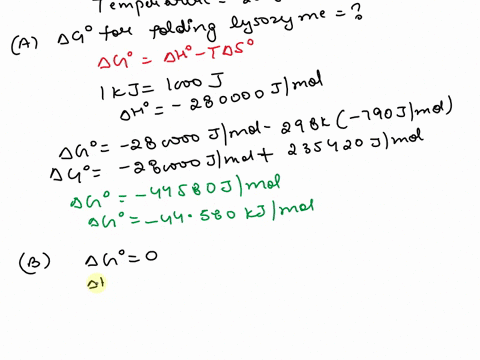 Temperature =
(A) ΔG° for folding lysozyme = ?
ΔG° = ΔH° - TΔS°
1 kJ = 1000 J
ΔH° = -280000 J/mol
ΔG° = -280000 J/mol - 298k (-790 J/mol)
ΔG° = -280000 J/mol + 235420 J/mol
ΔG° = -44580 J/mol
ΔG° = -44.580 kJ/mol
(B) ΔG° = 0